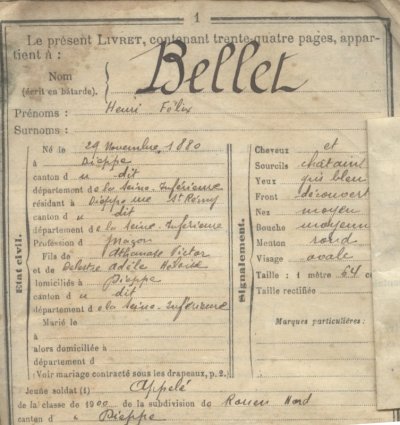 1
Le présent LIVRET, contenant trente-quatre pages, appar-
tient à :
Nom
(écrit en bâtarde).
Bellet
Prénoms : Henri Félix
Surnoms :
Etat civil.
Né le 29 Novembre 1880
à Dieppe
canton du dit
département de la Seine-Inférieure
résidant à Dieppe rue St Rémy
canton du dit
département de la Seine-Inférieure
Profession d maçon
Fils de Athanase Victor
et de Delestre Adèle
domiciliés à Dieppe
canton du dit
département de la Seine-Inférieure
Marié le
à
alors domiciliée à
département d
(Voir mariage contracté sous les drapeaux, p. 2.)
Signalement.
Cheveux et
Sourcils châtains
Yeux gris bleu
Front découvert
Nez moyen
Bouche moyenne
Menton rond
Visage ovale
Taille : 1 mètre 64 c
Taille rectifiée
Marques particulières :
Jeune soldat (1) Appelé
de la classe de 1900 de la subdivision de Rouen Nord
canton d Dieppe